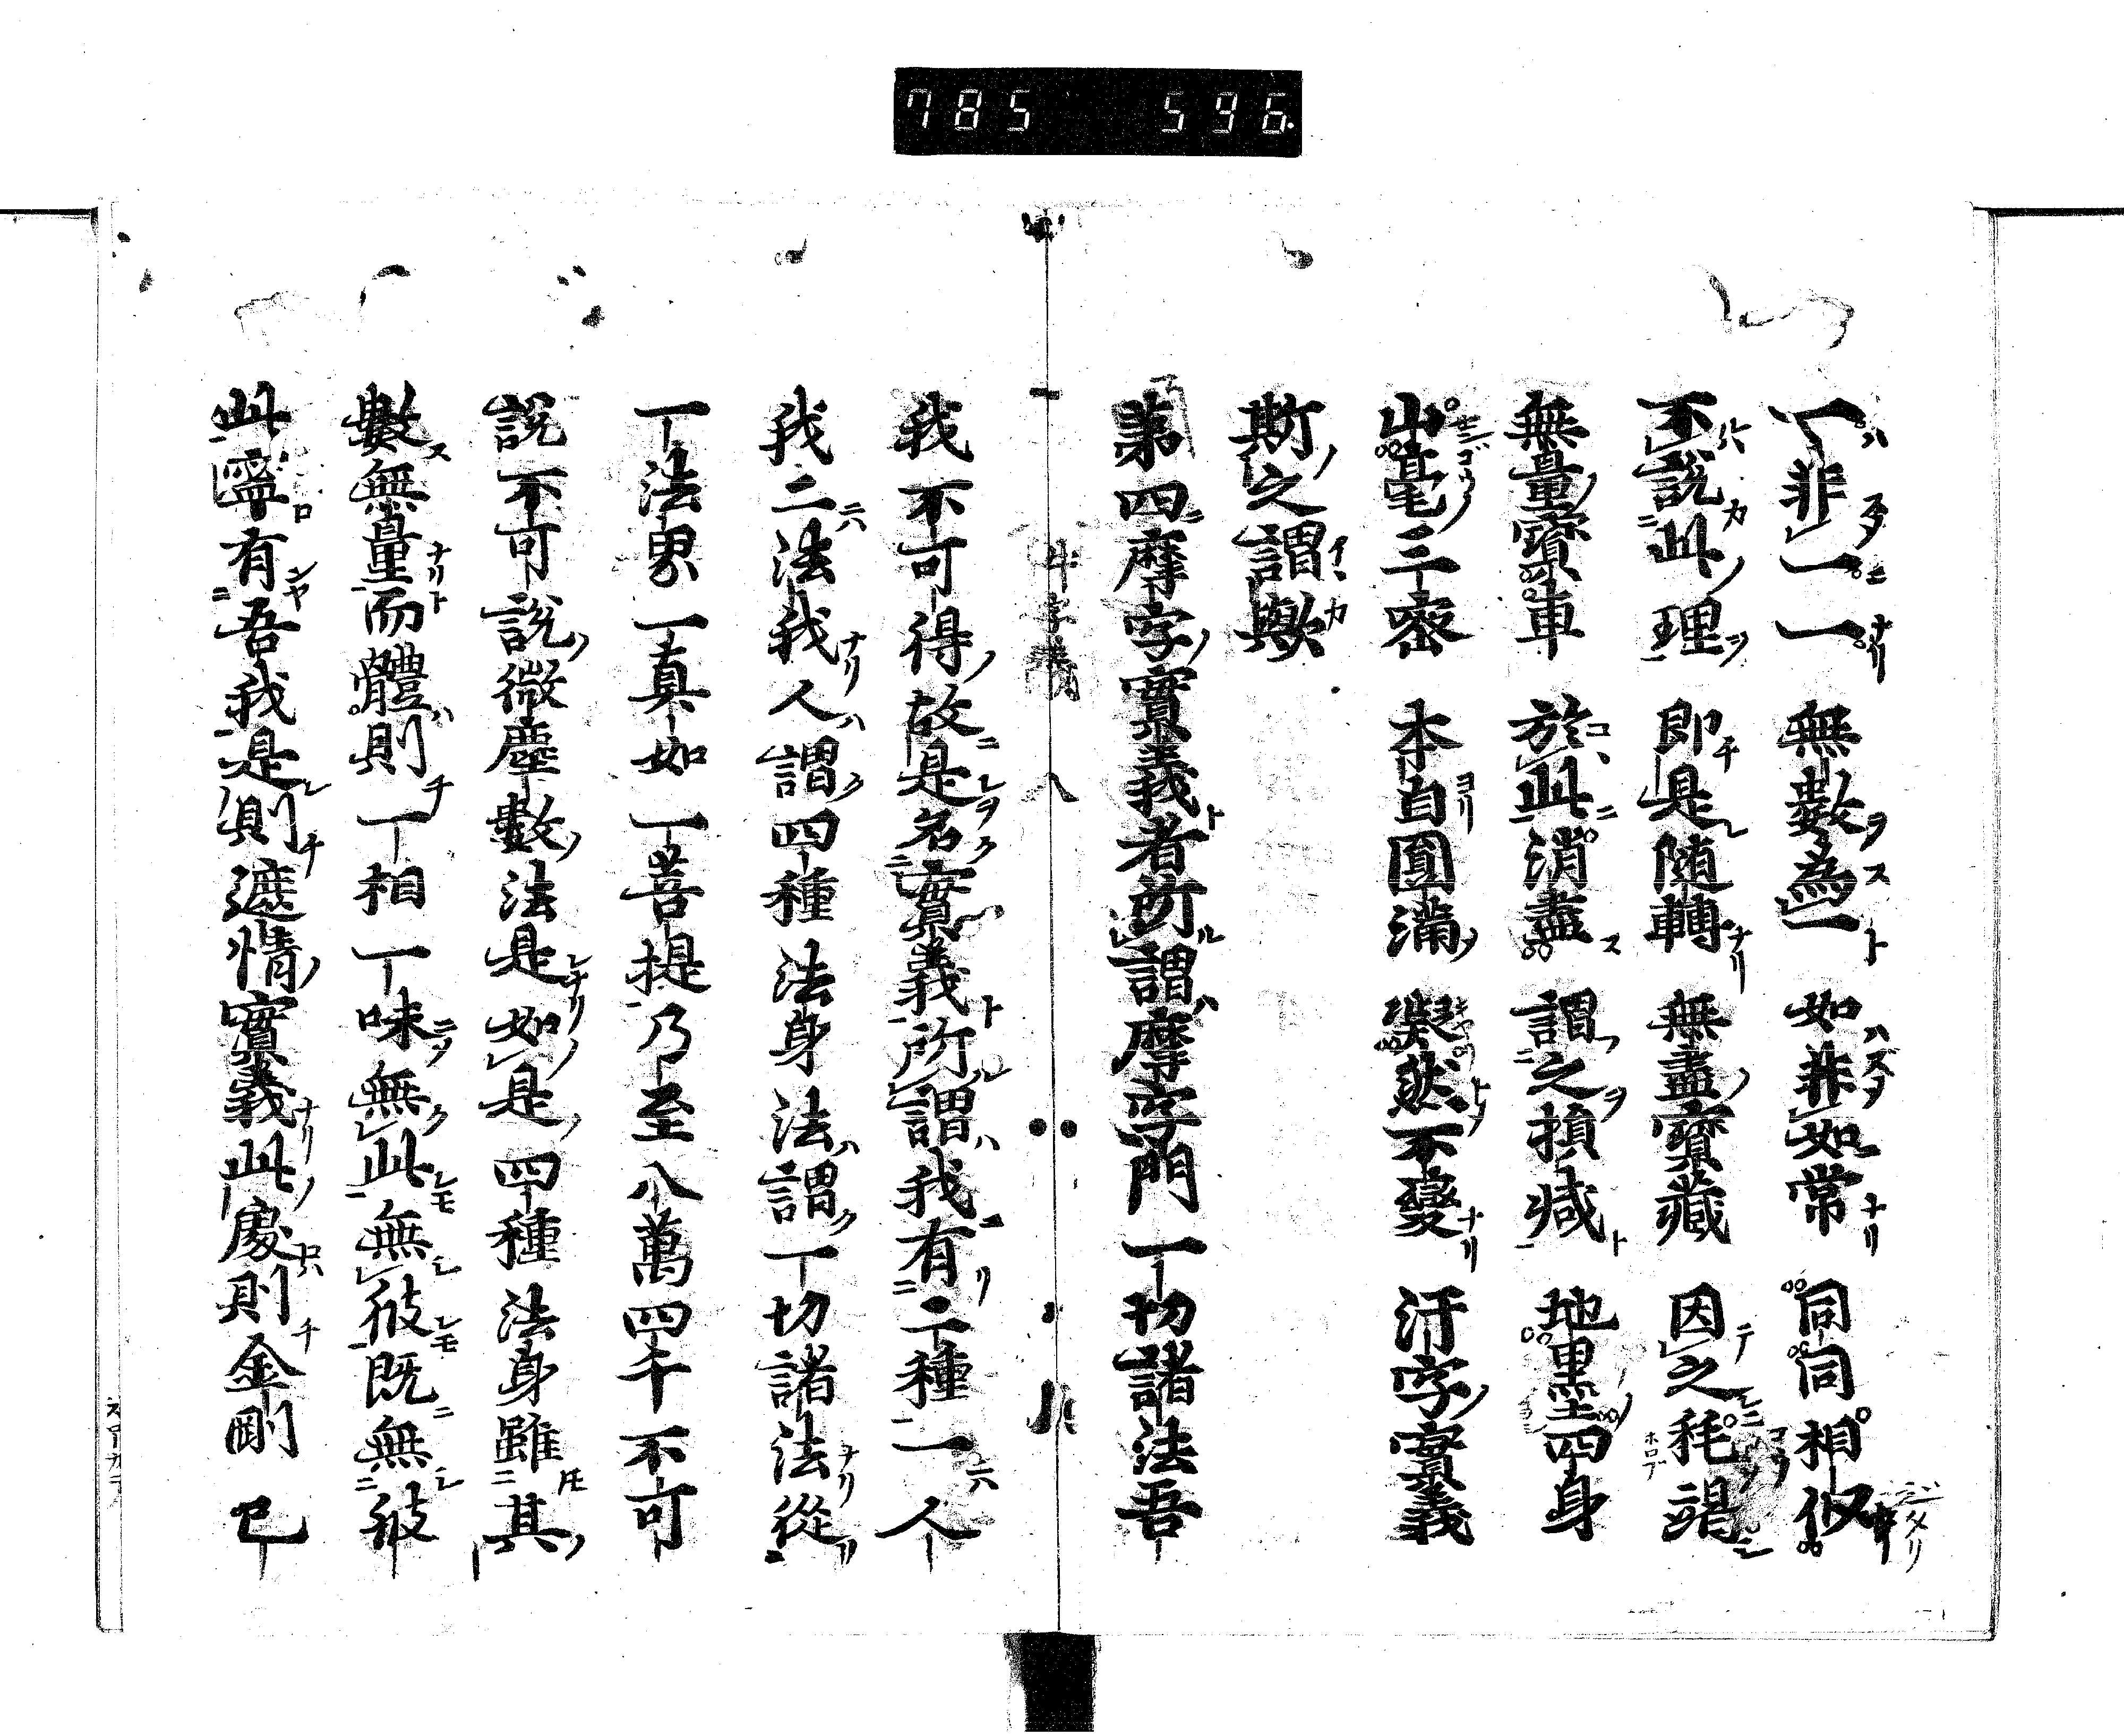 785 596
一非一一 無數為一 如非如常 同同相似
不說此理 即是随轉 無盡寶藏 因之秏竭
無量寶車 於此消盡 謂之損减 地墨四身
山毫三密 本自圓滿 凝然不變 汙字實義
斯之謂歟
第四摩字實義者所謂摩字門一切諸法吾
吽字義 八
我不可得故是名實義所謂我有二種一人
我二法我人謂四種法身法謂一切諸法從
一法界一真如一菩提乃至八萬四千不可
說不可說微塵數法是如是四種法身雖其
數無量而體則一相一味無此無彼既無彼
此寧有吾我是則遮情實義此處則金剛已